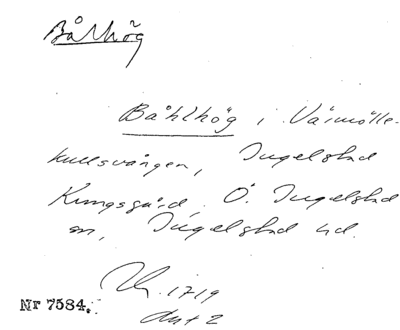 Bålhög
Båhlhög i Vårmölle-
kullsvången, Ingelstad
Kungsgård, Ö. Ingelstad
sn, Ingelstad hd.
1719
Akt 2
Nr 7584.